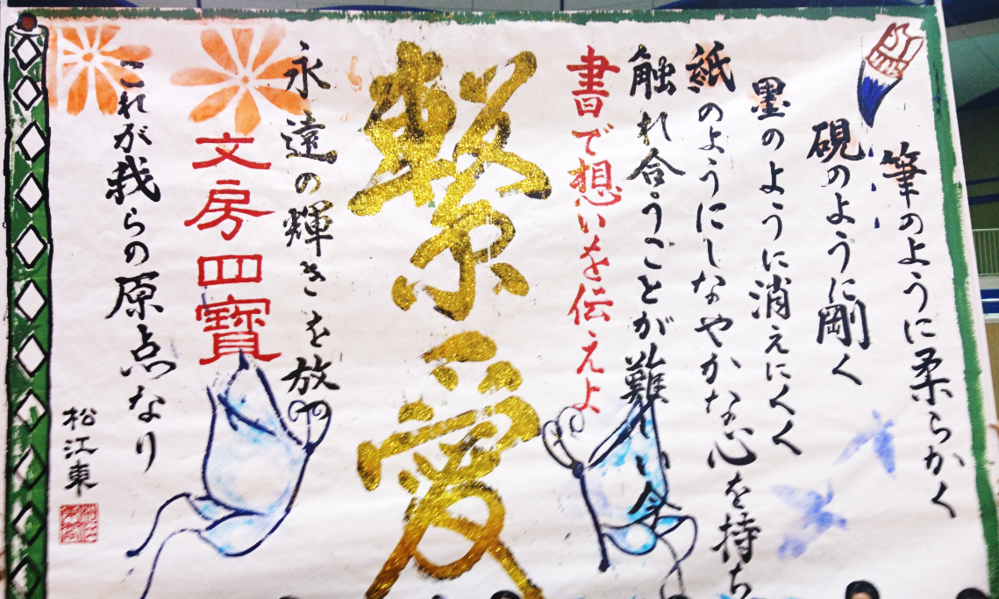 筆のように柔らかく
硯のように剛く
墨のように消えにくく
紙のようにしなやかな心を持ち
触れ合うことが難しい今
書で想いを伝えよ
繋愛
永遠の輝きを放
文房四寶
これが我らの原点なり
松江東